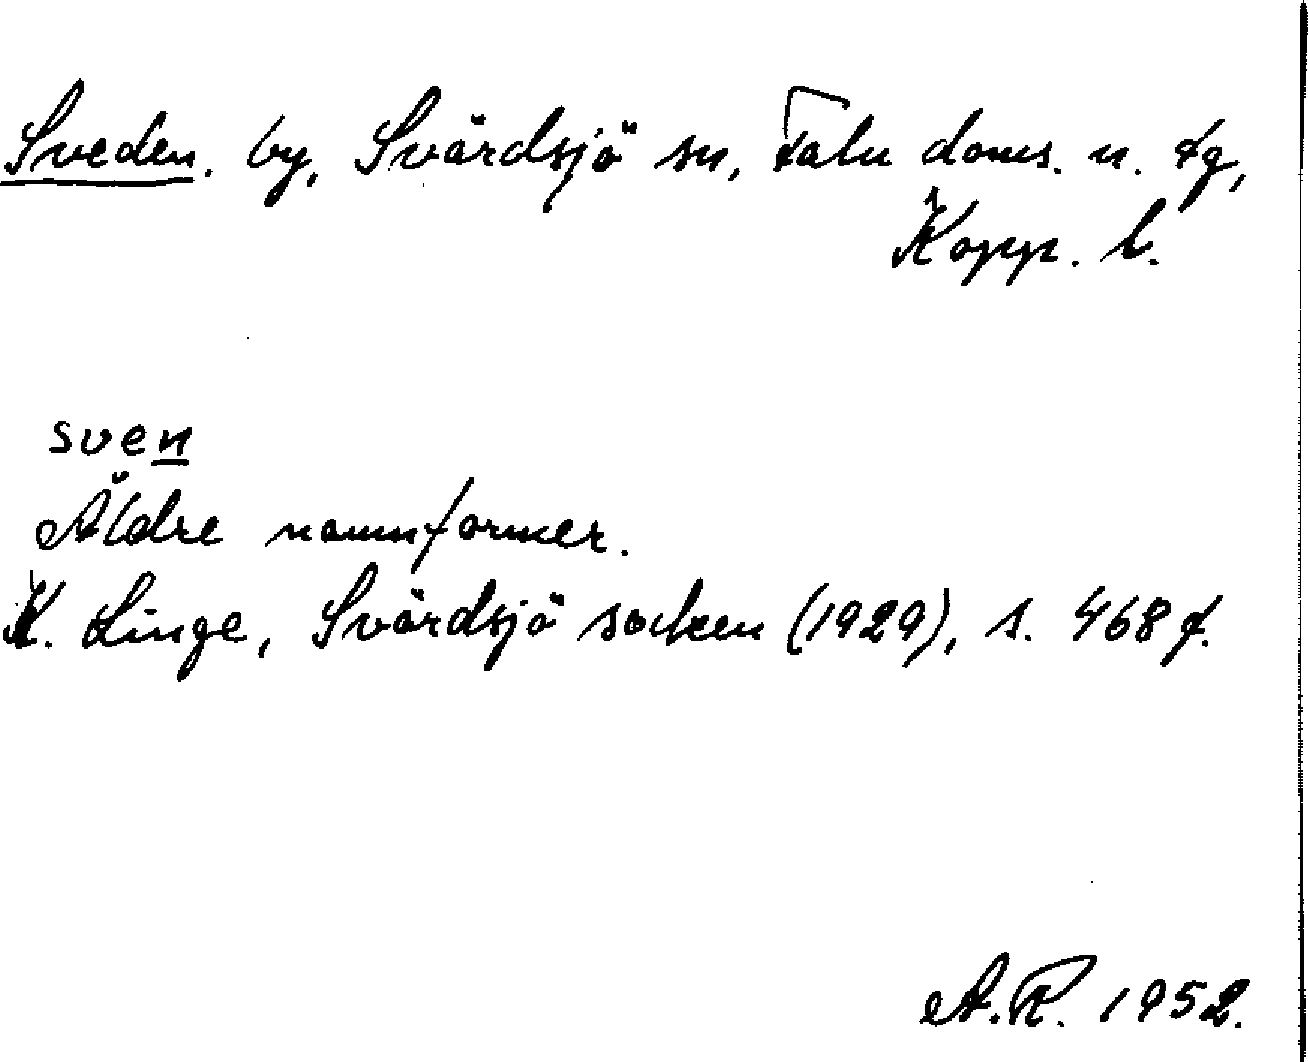 Sveden. by, Svärdsjö sn, Falu doms. u. fg,
Kopp. l.
sven
Äldre namnformer.
K. Linge, Svärdsjö socken (1929), s. 468 f.
A.R. 1952.